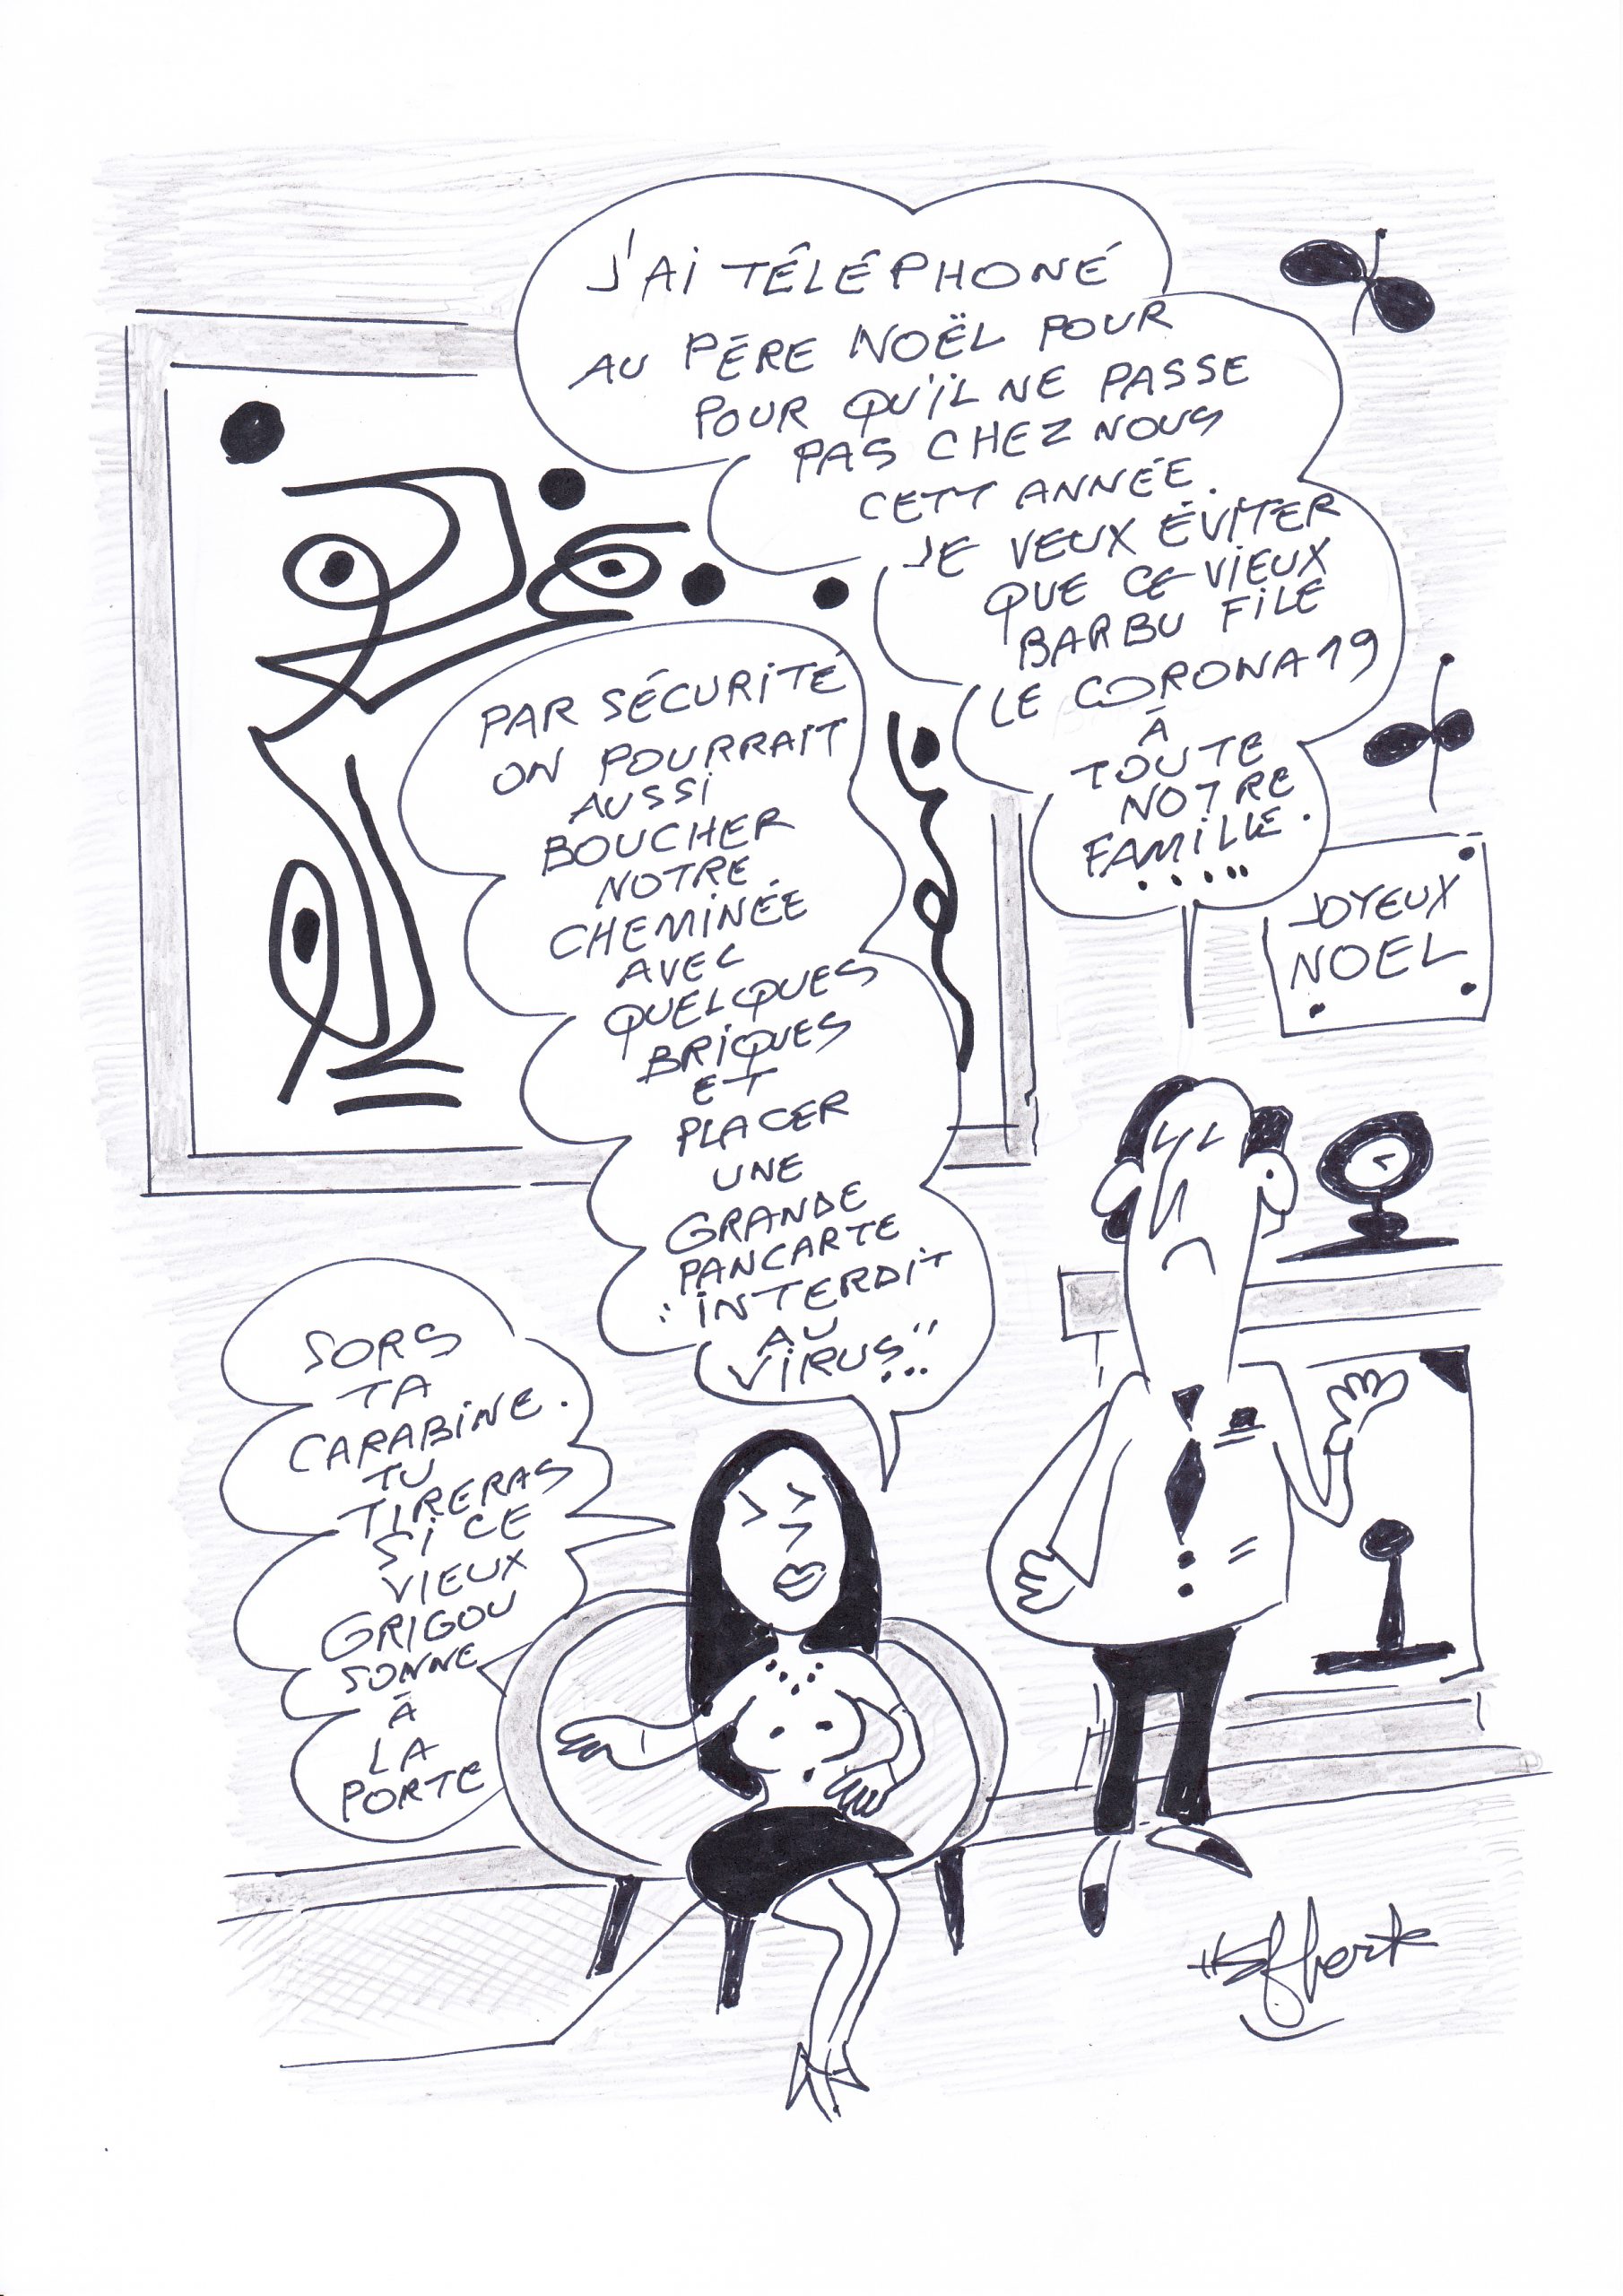 J'AI TÉLÉPHONÉ
AU PÉRE NOËL POUR
POUR QU'IL NE PASSE
PAS CHEZ NOUS
CETT ANNÉE.
JE VEUX ÉVITER
QUE CE VIEUX
BARBU FILE
LE CORONA 19
À
TOUTE
NOTRE
FAMILLE.
.....
PAR SÉCURITÉ
ON POURRAIT
AUSSI
BOUCHER
NOTRE
CHEMINÉE
AVEC
QUELQUES
BRIQUES
ET
PLACER
UNE
GRANDE
PANCARTE
"INTERDIT
AU
VIRUS"...
JOYEUX
NOEL
SORS
TA
CARABINE.
TU
TIRERAS
SI CE
VIEUX
GRIGOU
SONNE
À
LA
PORTE